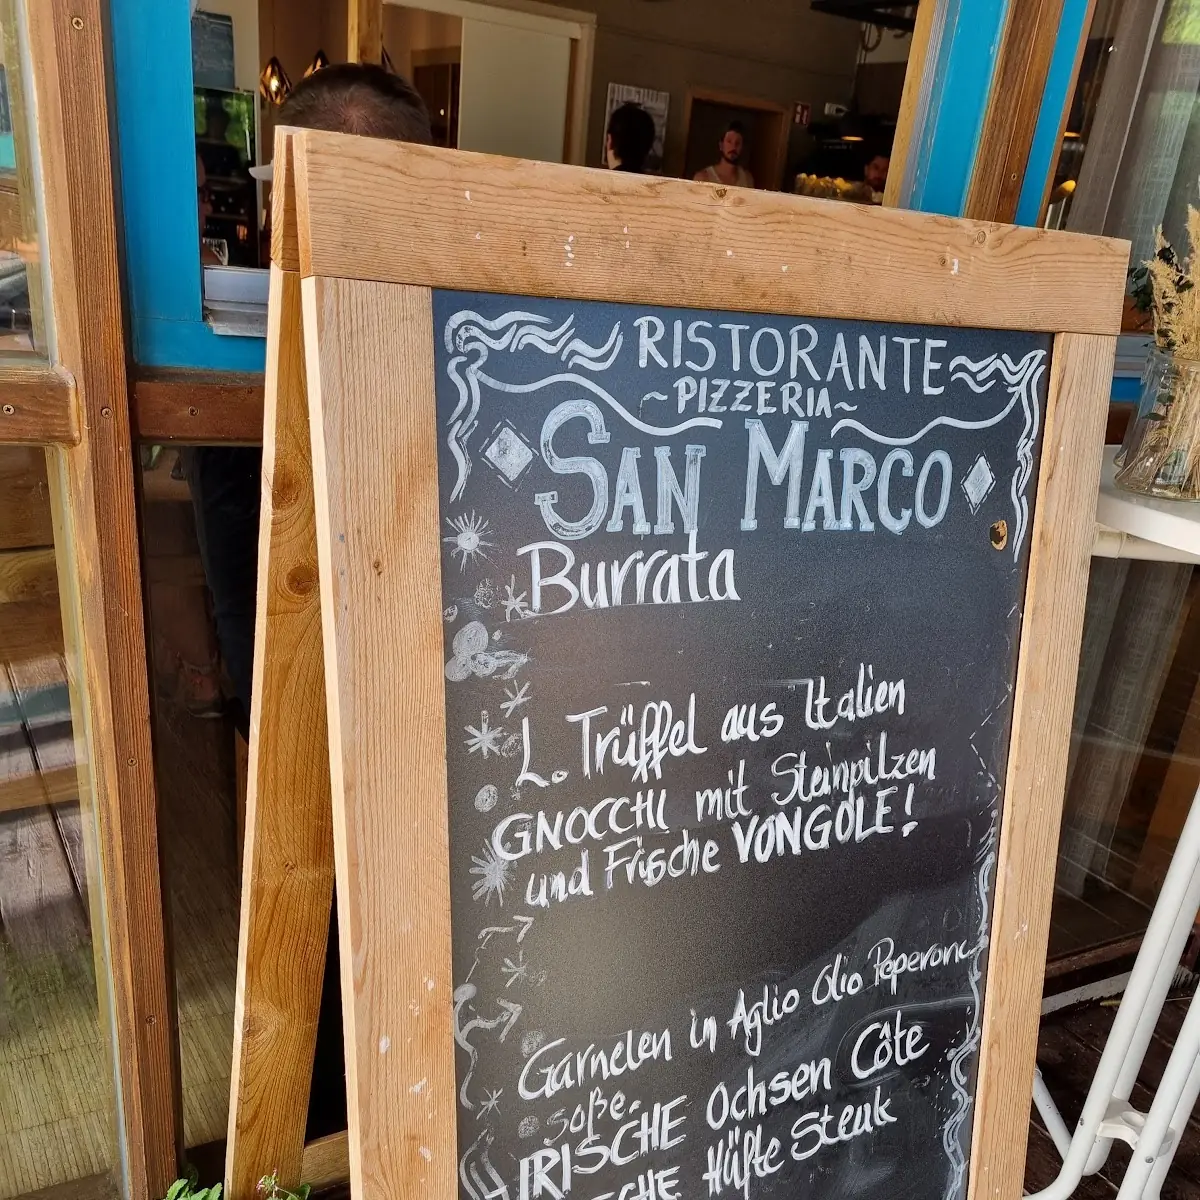 RISTORANTE
~PIZZERIA~
SAN MARCO
Burrata
L. Trüffel aus Italien
GNOCCHI mit Steinpilzen
und Frische VONGOLE!
Garnelen in Aglio Olio Peperonc
soße.
IRISCHE Ochsen Côte
Hüfte Steak